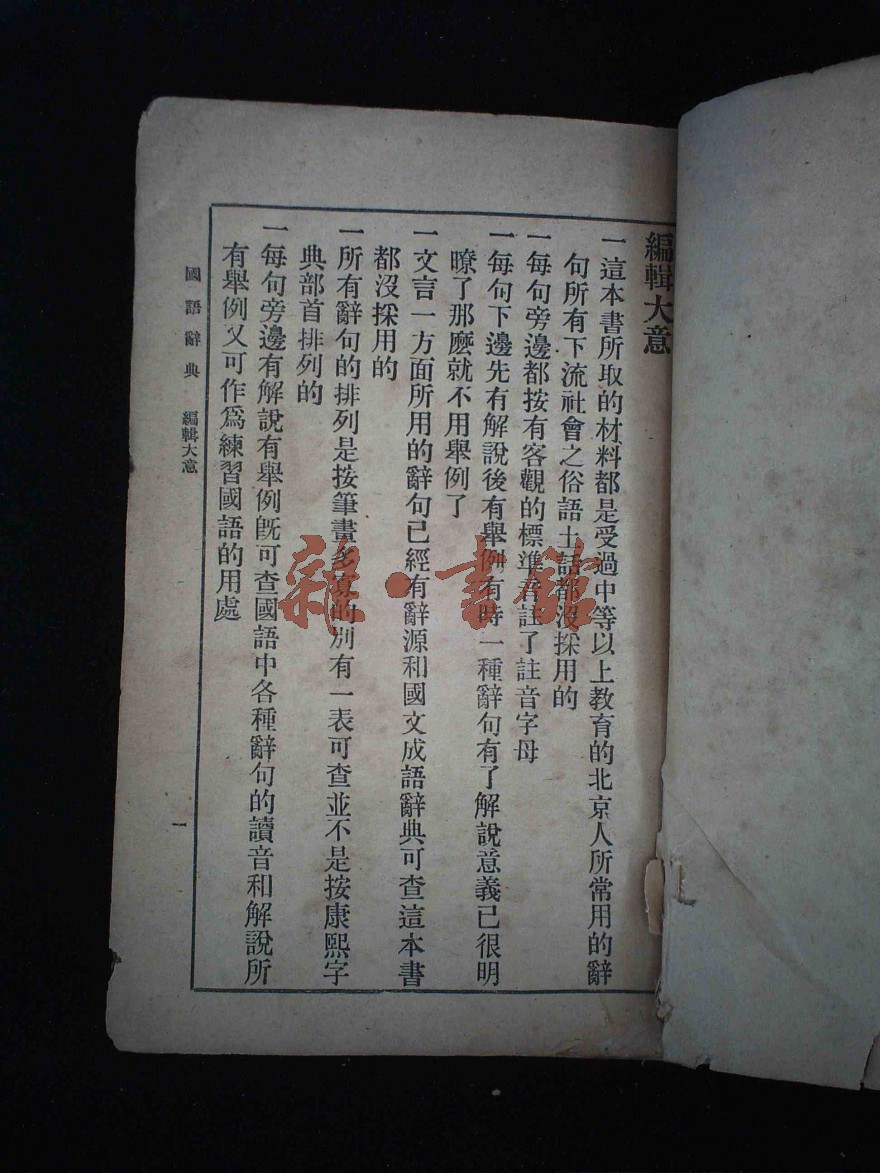 編輯大意
一這本書所取的材料都是受過中等以上教育的北京人所常用的辭
句所有下流社會之俗語土話都沒採用的
一每句旁邊都按有客觀的標準音註了註音字母
一每句下邊先有解說後有舉例有時一種辭句有了解說意義已很明
瞭了那麽就不用舉例了
一文言一方面所用的辭句已經有辭源和國文成語辭典可查這本書
都沒採用的
一所有辭句的排列是按筆畫多寡的別有一表可查並不是按康熙字
典部首排列的
一每句旁邊有解說有舉例旣可查國語中各種辭句的讀音和解說所
有舉例又可作爲練習國語的用處
國語辭典 編輯大意
一
雜·書館